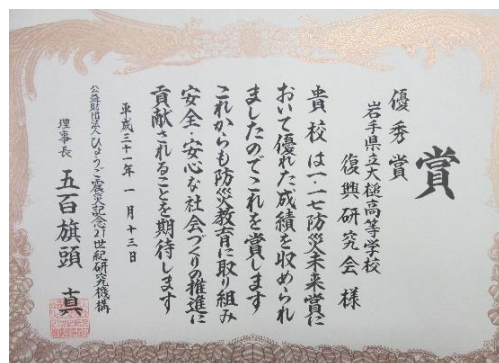 賞
優秀賞
岩手県立大槌高等学校
復興研究会 様
貴校は一・一七防災未来賞に
おいて優れた成績を収められ
ましたのでこれを賞します
これからも防災教育に取り組み
安全・安心な社会づくりの推進に
貢献されることを期待します
平成三十一年 一月十三日
公益財団法人ひょうご震災記念21世紀研究機構
理事長 五百旗頭 真